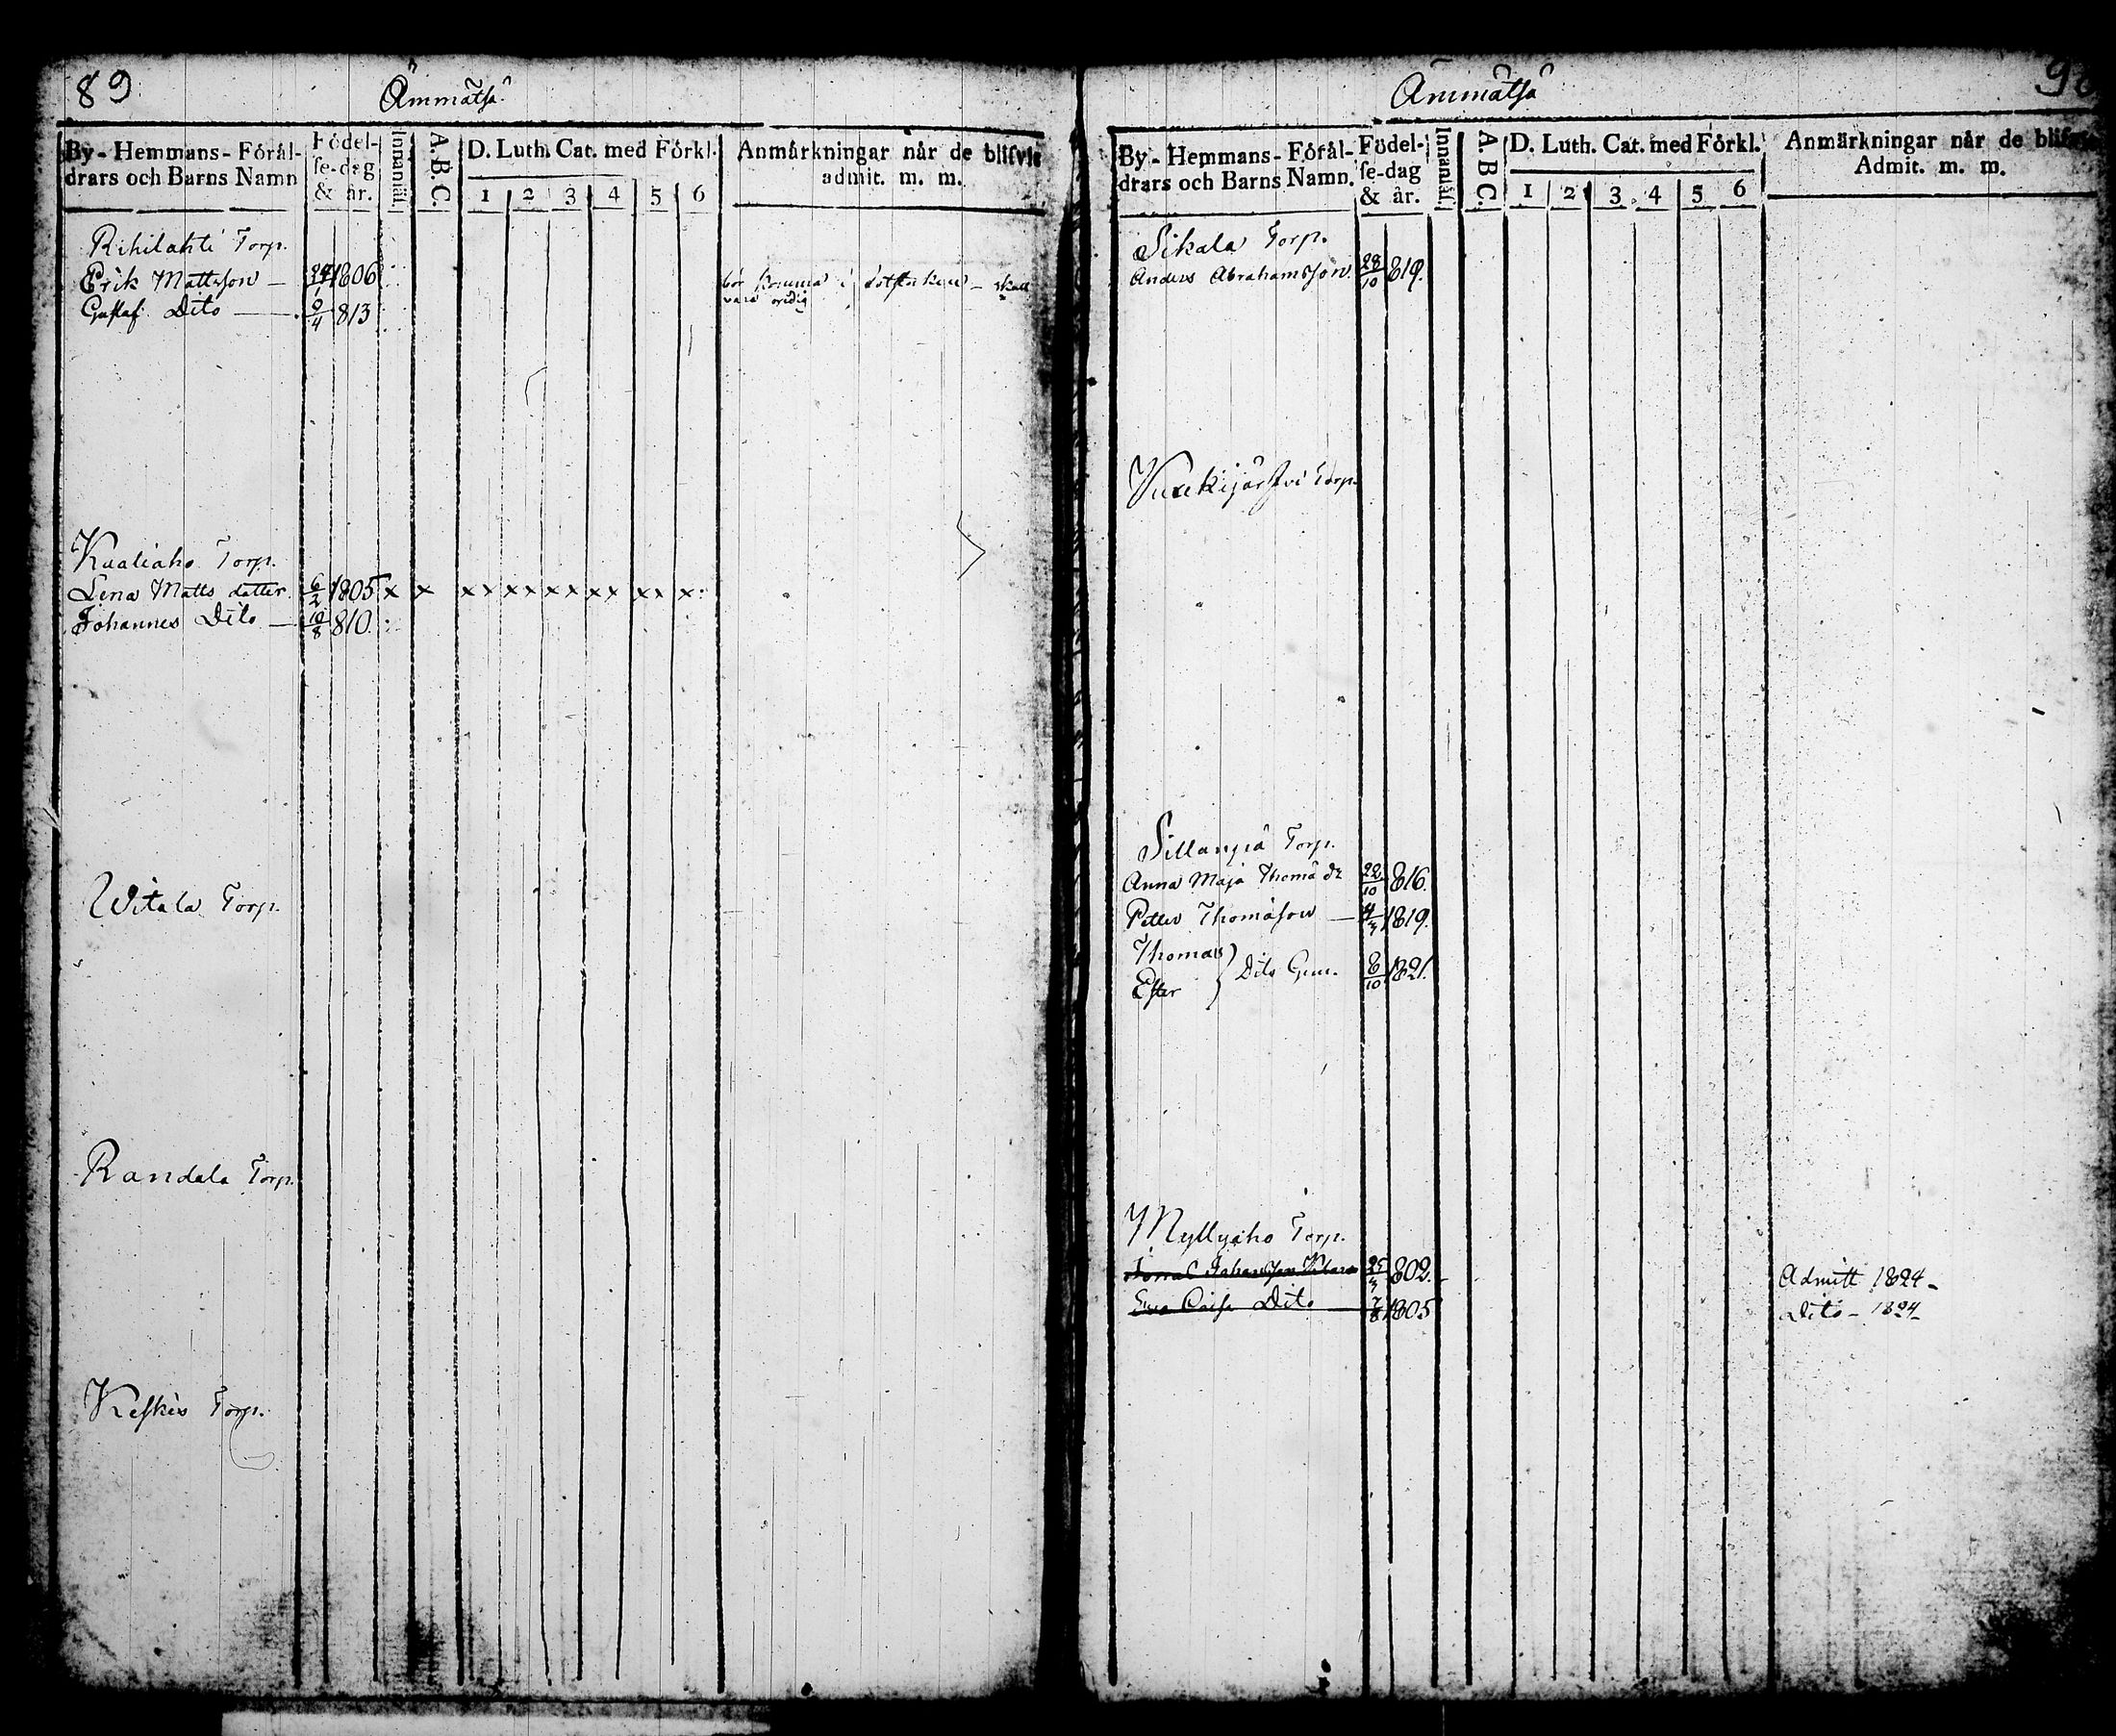 89
Ämmätsä
By- Hemmans- Föräl-
drars och Barns Namn
Födel-
se-dag
& år.
Innanläs.
A.B.C.
D. Luth. Cat. med Förkl.
1 2 3 4 5 6
Anmärkningar når de blifvit
admit. m. m.
Rihilahti Torp.
Erik Mattsson — 1806
bör komma i
skall
Gustaf Dito — 9/4 813
vara
Kualiaho Torp.
Lena Matts dotter. 6/2 1805 x x xx xx xx xx xx x
Johannes Dito — 10/8 810.
Witala Torp.
Randala Torp.
Keskis Torp.
90
Ämmätsä
By- Hemmans- Föräl-
drars och Barns Namn.
Födel-
se-dag
& år.
Innanläs.
A B C.
D. Luth. Cat. med Förkl.
1 2 3 4 5 6
Anmärkningar når de blifvit
Admit. m. m.
Sikala Torp.
Anders Abrahamsson. 28/10 819.
Torp.
Sillanpää Torp.
Anna Maja Thomä dr 22/10 816.
Petter Thomäson — 1819.
Thomas
Ester } Dito Gem. 8/10 1821.
Myllyaho Torp.
Jonas Johansson 802. Admitt 1824 —
Eva Caisa Dito — 7/8 1805 Dito — 1824 —